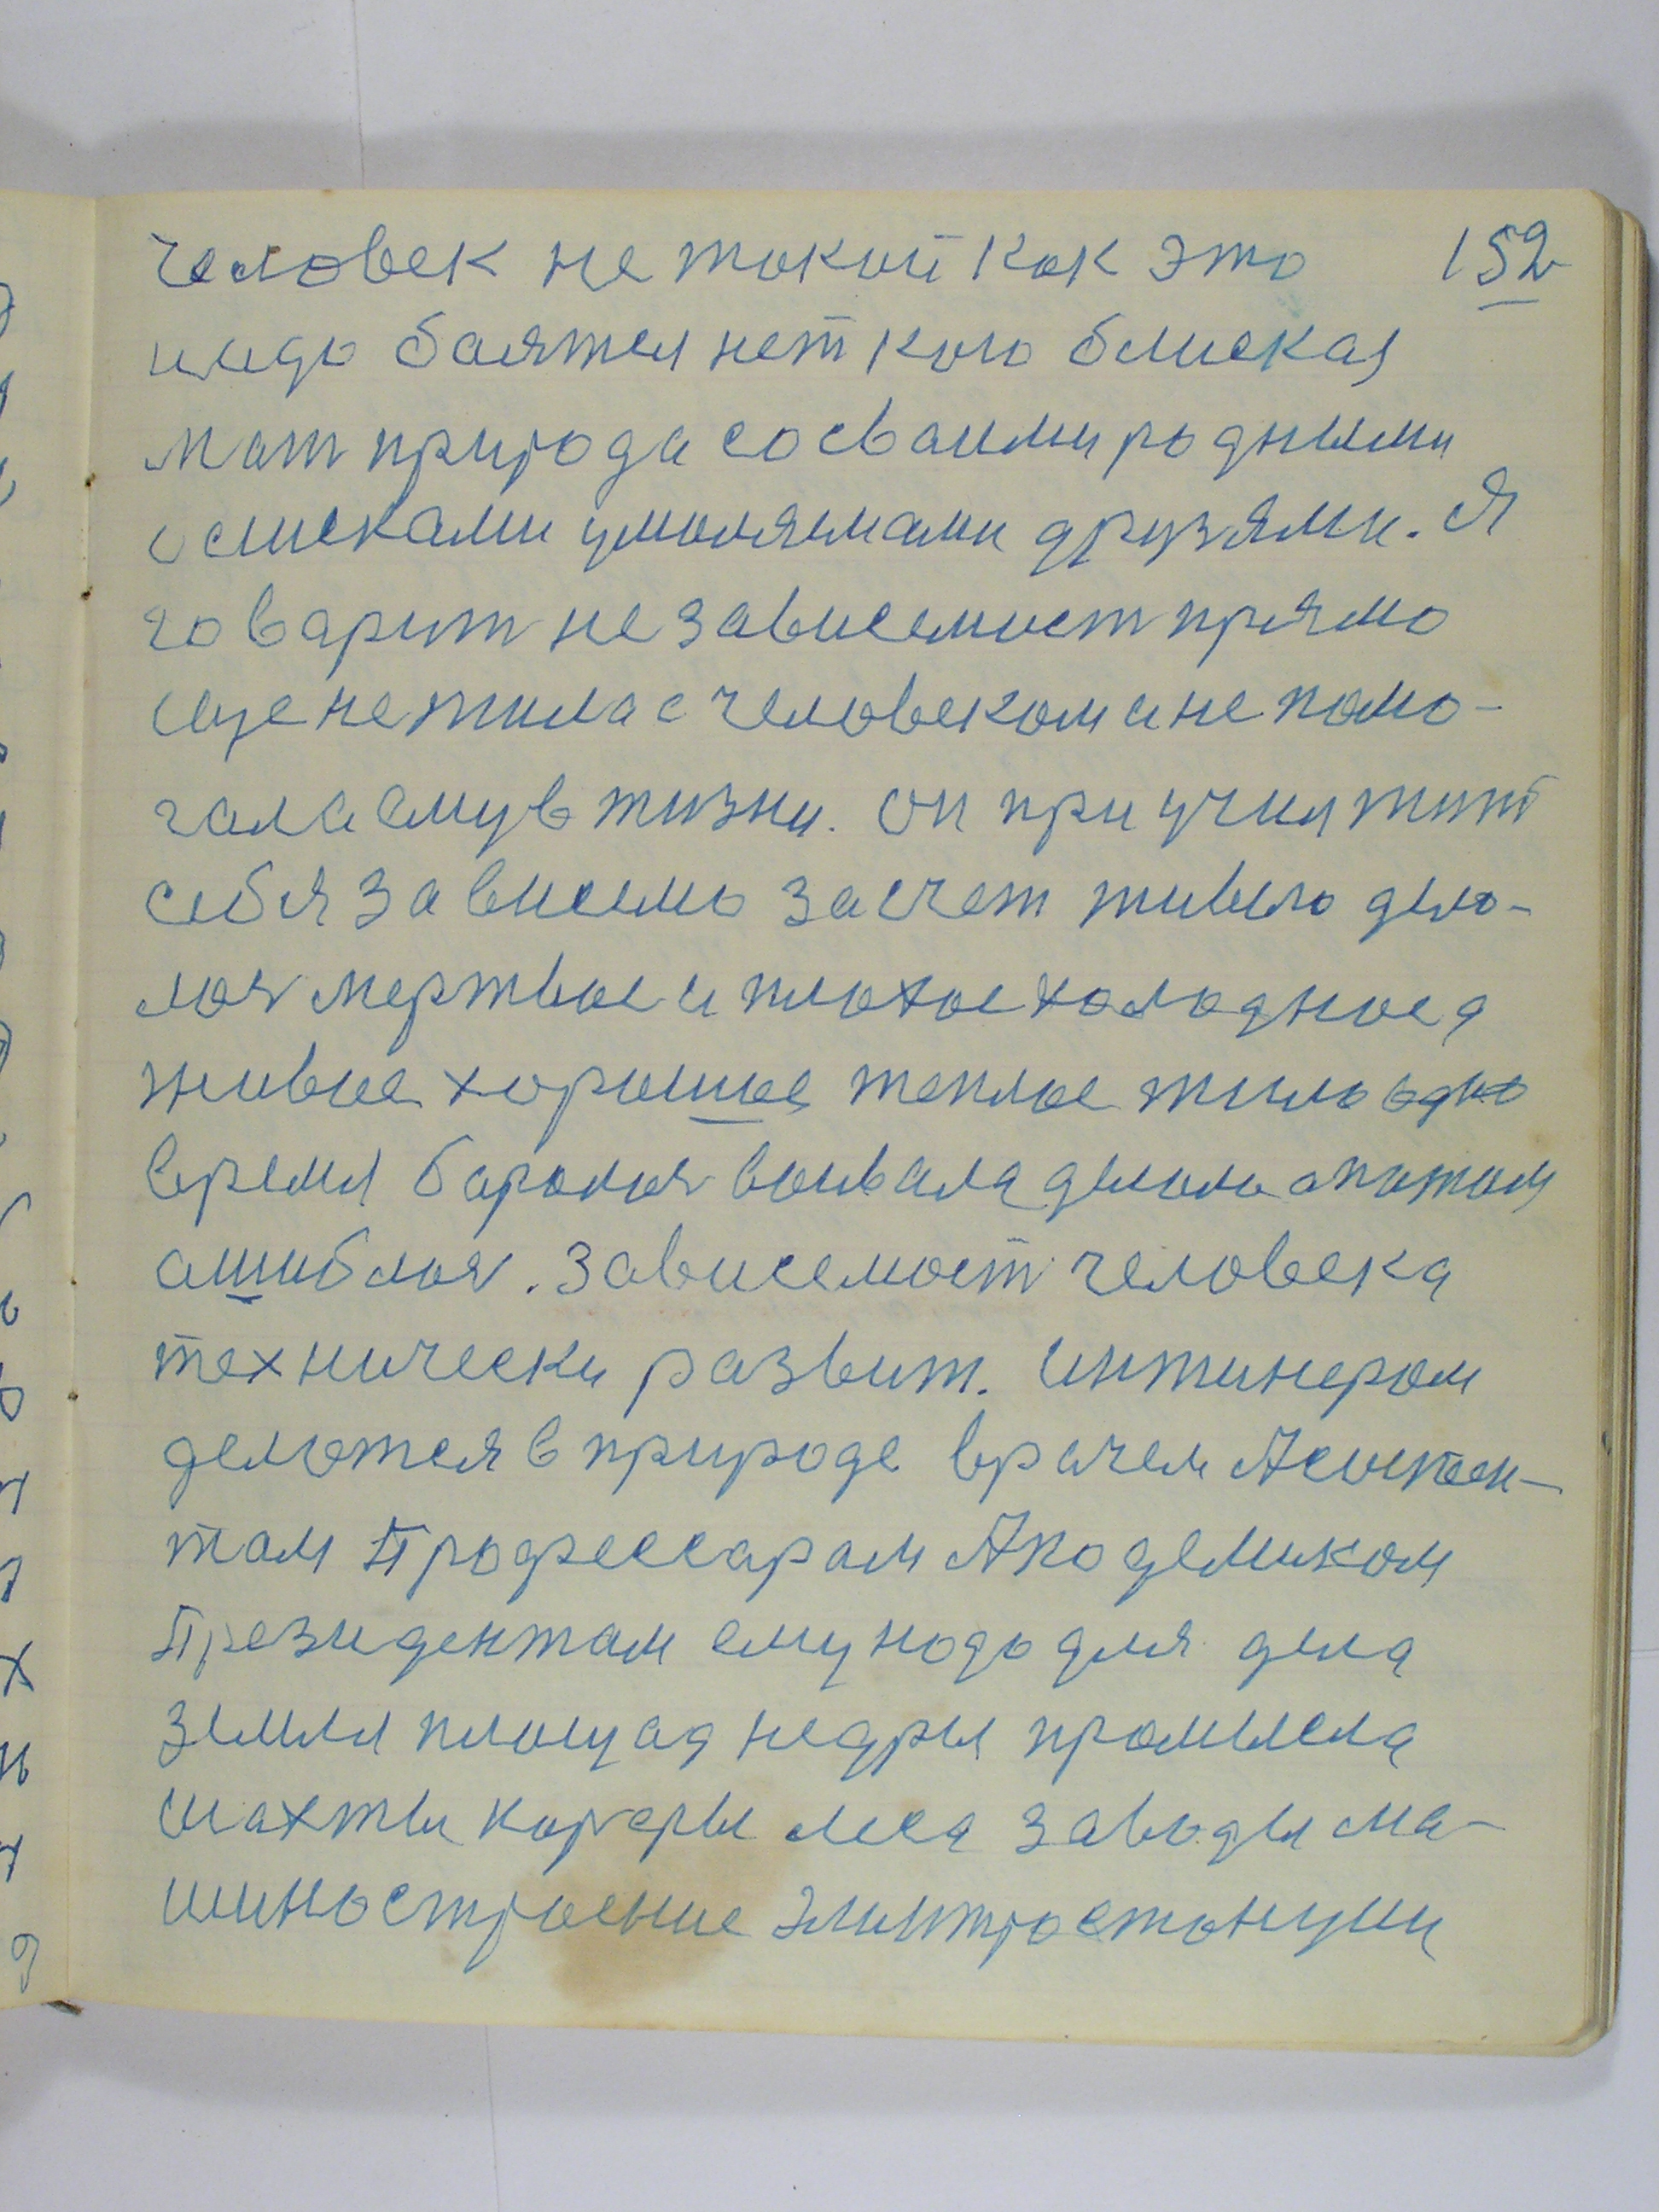 человек не токой как это 152
надо баятся нет кого блиская
мат природа сосваими родными
с слисками умоляемами друзями. Я
говарит не зависемост прямо
еще не жила с человеком и не помо-
гала ему в жизни. он приучил жит
себя зависемо засчет живого дело-
лос мертвое и плохое холодное а
живое хорошое теплое жило одно
время боролос воивала делоло а потом
ашиблос. Зависемост человека
технически развит. инжинером
делоется в природе врачем Асистен-
там Профессарам Академиком
Президентам ему нодо для дела
земля площад недры промысла
шахты карьеры леса заводы ма-
шиностроение электростонции